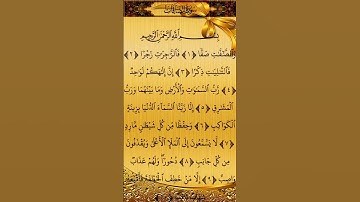 بِسْمِ اللَّهِ الرَّحْمَٰنِ الرَّحِيمِ
وَالصَّافَّاتِ صَفًّا ﴿١﴾ فَالزَّاجِرَاتِ زَجْرًا ﴿٢﴾
فَالتَّالِيَاتِ ذِكْرًا ﴿٣﴾ إِنَّ إِلَٰهَكُمْ لَوَاحِدٌ
﴿٤﴾ رَبُّ السَّمَاوَاتِ وَالْأَرْضِ وَمَا بَيْنَهُمَا وَرَبُّ
الْمَشَارِقِ ﴿٥﴾ إِنَّا زَيَّنَّا السَّمَاءَ الدُّنْيَا بِزِينَةٍ
الْكَوَاكِبِ ﴿٦﴾ وَحِفْظًا مِنْ كُلِّ شَيْطَانٍ مَارِدٍ
﴿٧﴾ لَا يَسَّمَّعُونَ إِلَى الْمَلَإِ الْأَعْلَىٰ وَيُقْذَفُونَ
مِنْ كُلِّ جَانِبٍ ﴿٨﴾ دُحُورًا وَلَهُمْ عَذَابٌ
وَاصِبٌ ﴿٩﴾ إِلَّا مَنْ خَطِفَ الْخَطْفَةَ فَأَتْبَعَهُ